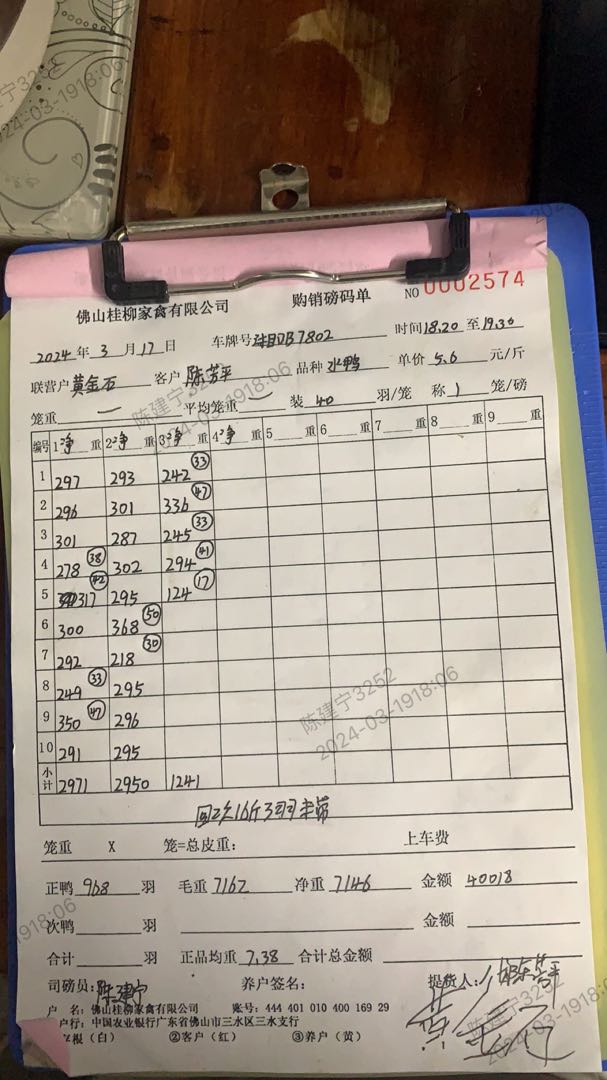 佛山桂柳家禽有限公司 购销磅码单 NO 0002574
2024 年 3 月 17 日 车牌号 7802 时间 18.20 至 19.30
联营户 黄金石 客户 陈芳平 品种 水鸭 单价 5.6 元/斤
笼重 一 平均笼重 一 装 40 羽/笼 称 1 笼/磅
编号 1 净 重 2 净 重 3 净 重 4 净 重 5 重 6 重 7 重 8 重 9 重
1 297 293 242 33
2 296 301 336 47
3 301 287 245 33
4 278 38 302 294 41
5 317 42 295 124 17
6 300 368 50
7 292 218 30
8 249 33 295
9 350 47 296
10 291 295
小计 2971 2950 1241
16斤3羽
笼重 X 笼=总皮重: 上车费
正鸭 968 羽 毛重 7162 净重 7146 金额 40018
次鸭 羽 金额
合计 羽 正品均重 7.38 合计总金额
司磅员: 陈建宁 养户签名: 提货人:
户 名: 佛山桂柳家禽有限公司 账号: 444 401 010 400 169 29
户行: 中国农业银行广东省佛山市三水区三水支行
存根(白) ②客户(红) ③养户(黄)
陈建宁3252
2024-03-1918:06
陈建宁3252
2024-03-1918:06
陈建宁3252
2024-03-1918:06